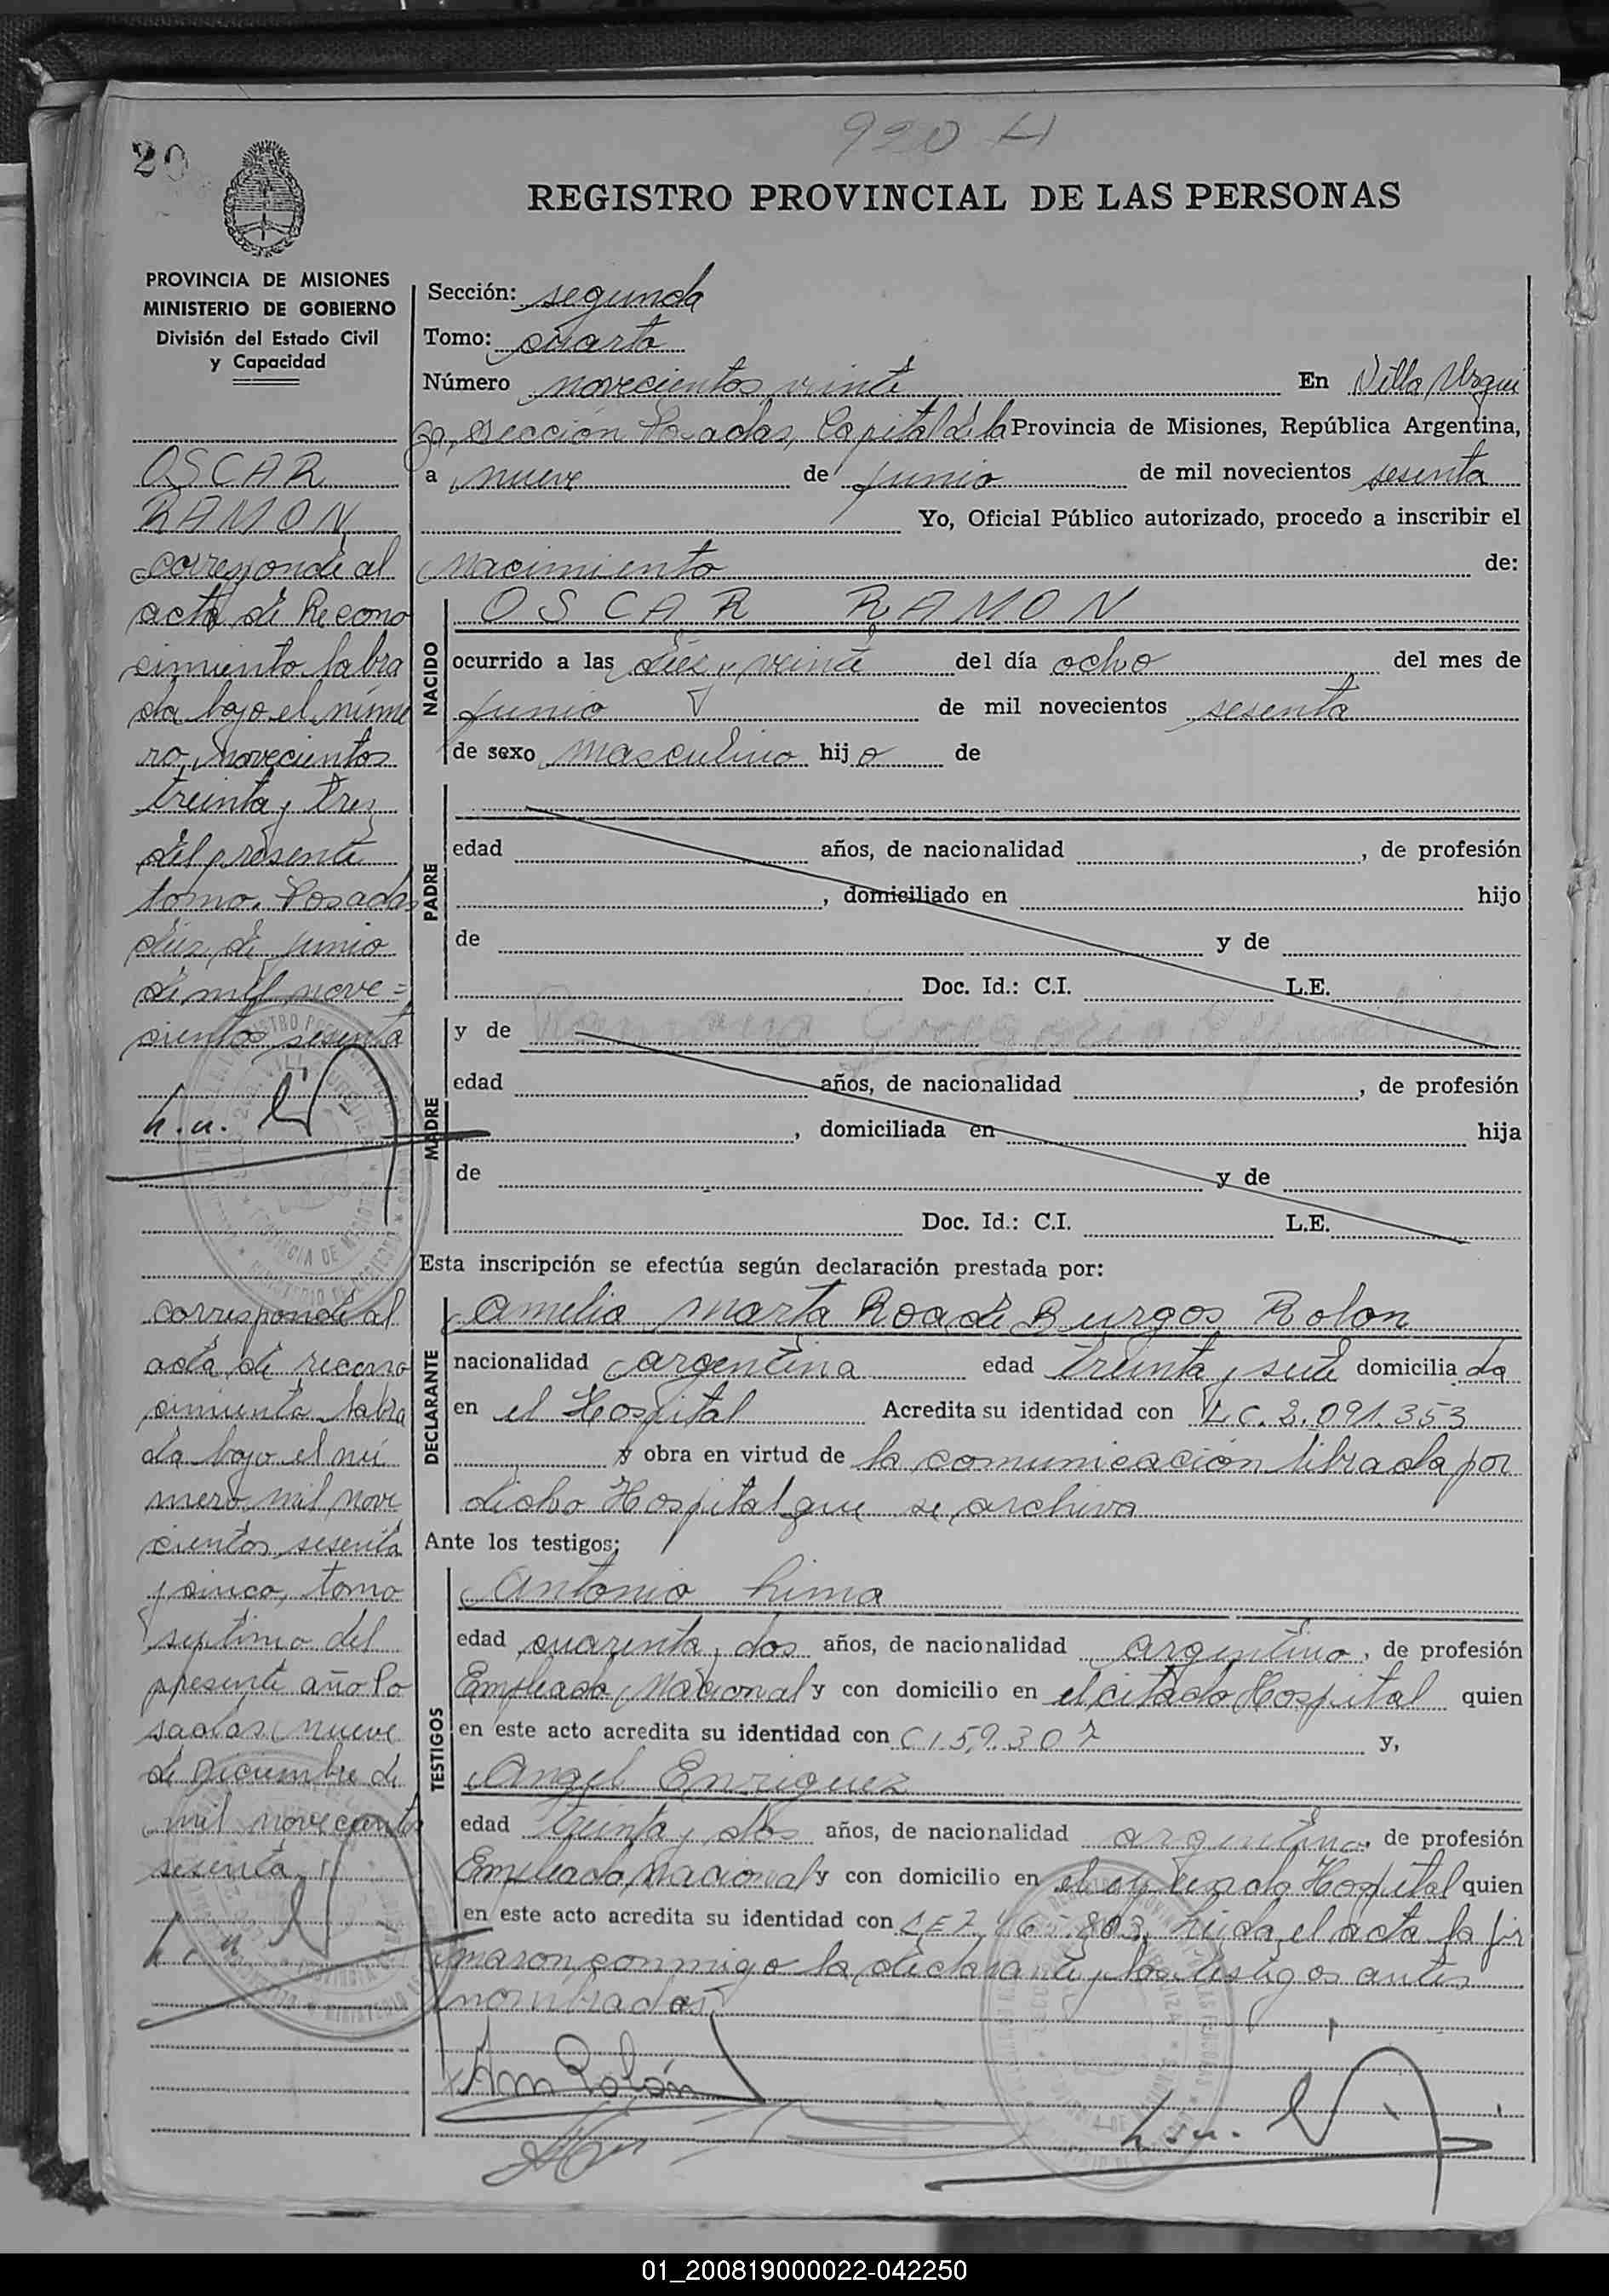 920 H
20
REGISTRO PROVINCIAL DE LAS PERSONAS
PROVINCIA DE MISIONES
MINISTERIO DE GOBIERNO
División del Estado Civil
y Capacidad
OSCAR
RAMON
corresponde al
acta de Recono
cimiento labra
da bajo el núme
ro novecientos
treinta y tres
del presente
tomo. Posadas
diez de junio
de mil nove=
cientos sesenta
corresponde al
acta de recono
cimiento labra
da bajo el nú
mero mil nove
cientos sesenta
y cinco, tomo
septimo del
presente año Po
sadas, nueve
de diciembre de
mil novecientos
sesenta
Sección: segunda
Tomo: cuarto
Número novecientos veinte En Villa Urqui
za, Sección Posadas, Capital de la Provincia de Misiones, República Argentina,
a nueve de junio de mil novecientos sesenta
Yo, Oficial Público autorizado, procedo a inscribir el
nacimiento de:
NACIDO
OSCAR RAMON
ocurrido a las diez y veinte del día ocho del mes de
junio de mil novecientos sesenta
de sexo masculino hijo de
PADRE
edad años, de nacionalidad , de profesión
, domiciliado en hijo
de y de
Doc. Id.: C.I. L.E.
MADRE
y de Ramona Gregoria
edad años, de nacionalidad , de profesión
, domiciliada en hija
de y de
Doc. Id.: C.I. L.E.
Esta inscripción se efectúa según declaración prestada por:
DECLARANTE
Amelia Marta Roa de Burgos Rolon
nacionalidad argentina edad treinta y siete domiciliada
en el Hospital Acredita su identidad con L.C. 2.091.353
y obra en virtud de la comunicación librada por
dicho Hospital que se archiva
Ante los testigos:
TESTIGOS
Antonio Lima
edad cuarenta y dos años, de nacionalidad argentino, de profesión
Empleado Nacional y con domicilio en el citado Hospital quien
en este acto acredita su identidad con C I 59.307 y,
Angel Enriquez
edad treinta y dos años, de nacionalidad argentino, de profesión
Empleado Nacional y con domicilio en el Hospital quien
en este acto acredita su identidad con Leida el acta la fir
maron conmigo la declarante y los testigos antes
nombrados
Am Rolón
01_200819000022-042250